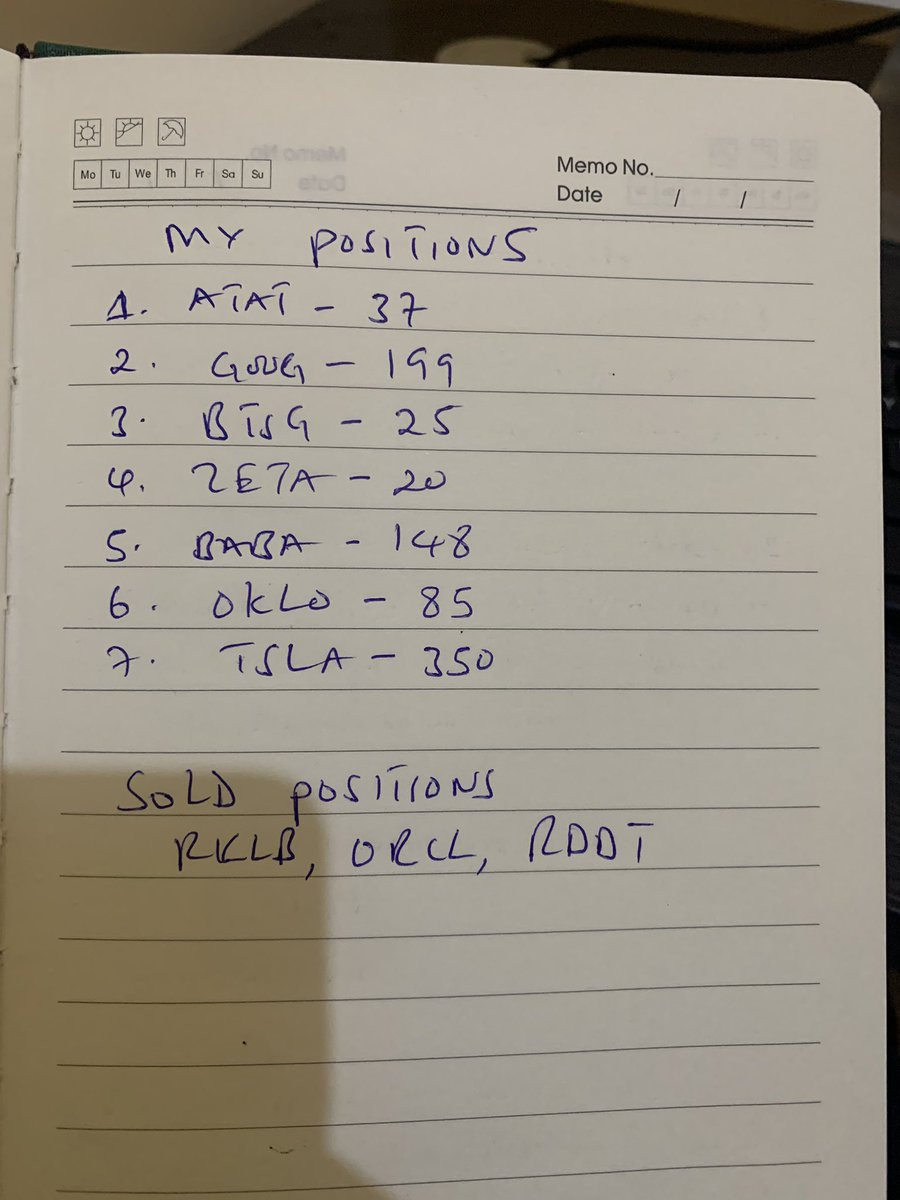 Mo Tu We Th Fr Sa Su
Memo No.
Date / /
MY POSITIONS
1. ATAT - 37
2. GOOG - 199
3. BTSG - 25
4. ZETA - 20
5. BABA - 148
6. OKLO - 85
7. TSLA - 350
SOLD POSITIONS
RKLB, ORCL, RDDT